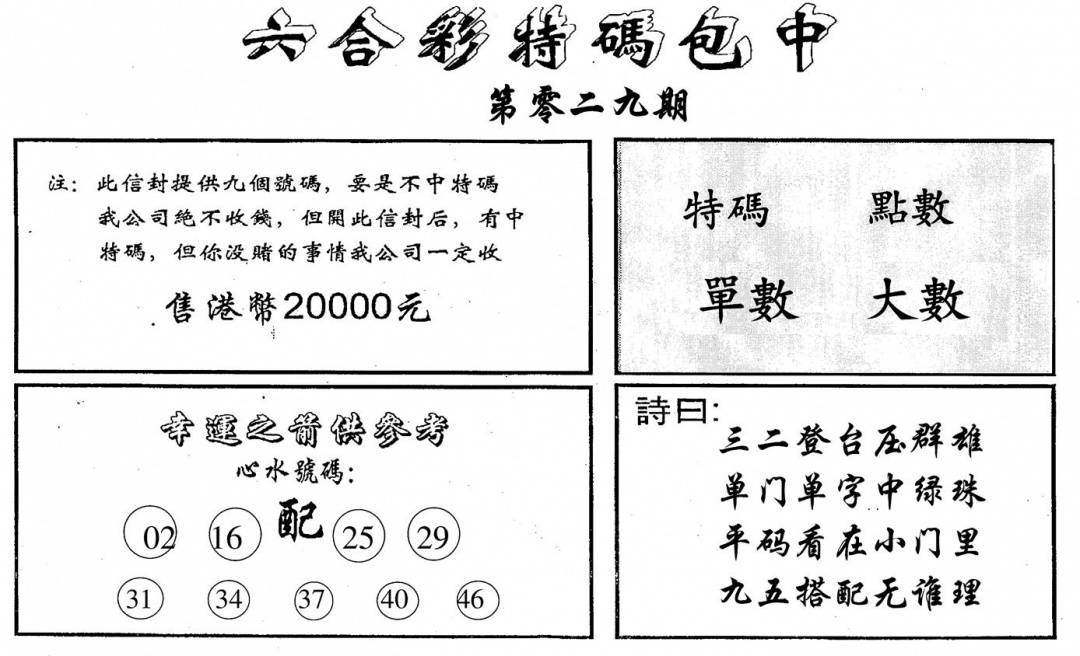 六合彩特碼包中
第零二九期
注：此信封提供九個號碼，要是不中特碼
我公司絶不收錢，但開此信封后，有中
特碼，但你没賭的事情我公司一定收
售港幣20000元
特碼 點數
單數 大數
幸運之箭供參考
心水號碼：
02 16 配 25 29
31 34 37 40 46
詩曰：
三二登台压群雄
单门单字中绿珠
平码看在小门里
九五搭配无谁理